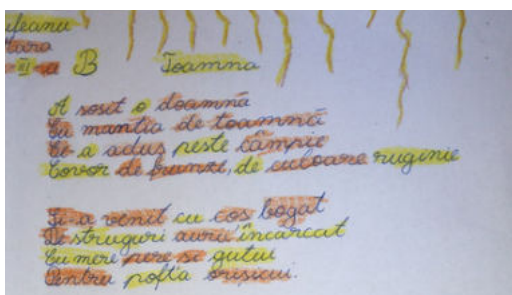 feanu
tara
-III-a B Toamna
A sosit o doamnă
Cu mantia de toamnă
Ce-a adus peste câmpie
Covor de frunze, de culoare ruginie
Și-a venit cu coș bogat
De struguri aurii încărcat
Cu mere pere și gutui
Pentru pofta orișicui.